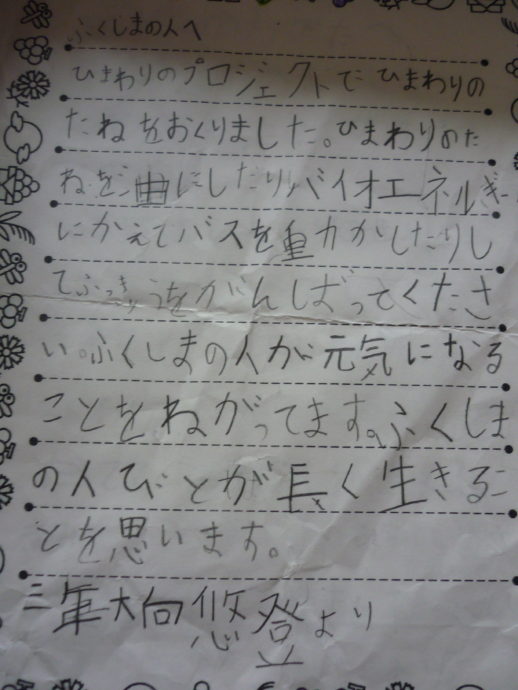 ふくしまの人へ
ひまわりのプロジェクトでひまわりの
たねをおくりました。ひまわりのた
ねを油にしたりバイオエネルぎ
にかえてバスを重力かしたりし
てふっきゅうをがんばってくださ
い。ふくしまの人が元気になる
ことをねがってます。ふくしま
の人びとが長く生きるこ
とを思います。
三年大向悠登より